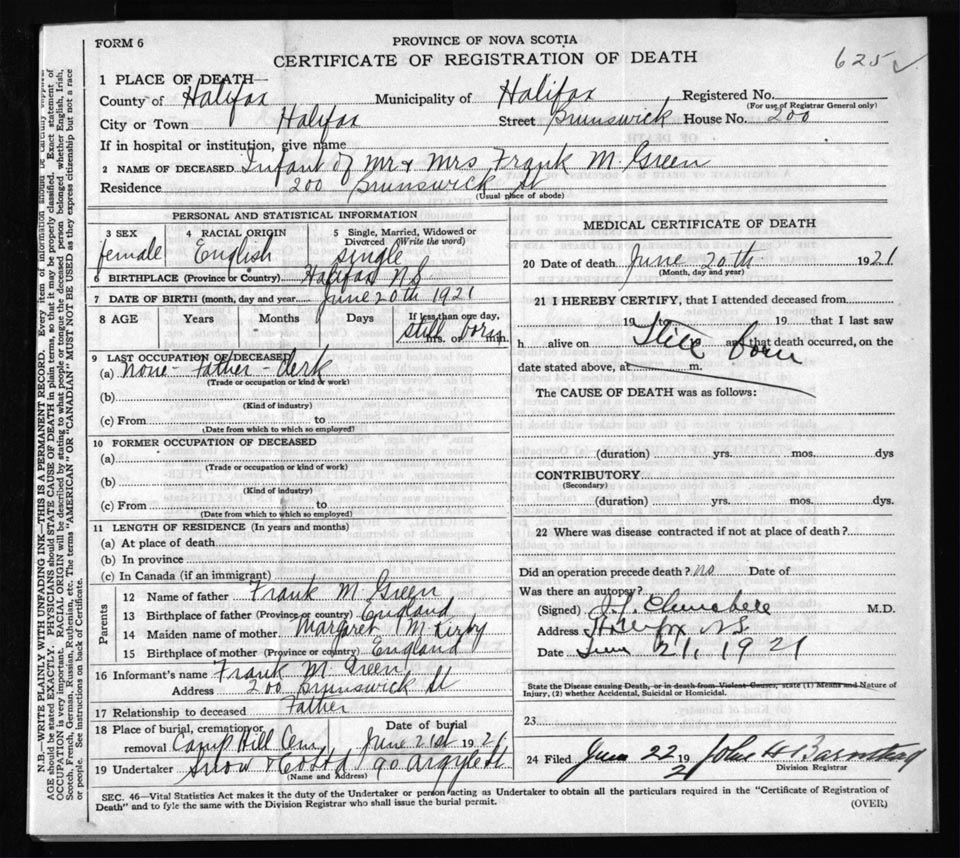 FORM 6
PROVINCE OF NOVA SCOTIA
CERTIFICATE OF REGISTRATION OF DEATH
625 ✓
1 PLACE OF DEATH
County of Halifax Municipality of Halifax Registered No.
(For use of Registrar General only)
City or Town Halifax Street Brunswick House No. 200
If in hospital or institution, give name
2 NAME OF DECEASED Infant of Mr & Mrs Frank M. Green
Residence 200 Brunswick St
(Usual place of abode)
PERSONAL AND STATISTICAL INFORMATION
3 SEX female
4 RACIAL ORIGIN English
5 Single, Married, Widowed or Divorced (Write the word) single
6 BIRTHPLACE (Province or Country) Halifax N.S.
7 DATE OF BIRTH (month, day and year) June 20th 1921
8 AGE Years Months Days If less than one day, hrs. or min. still born
9 LAST OCCUPATION OF DECEASED
(a) None - Father - Clerk
(Trade or occupation or kind of work)
(b)
(Kind of industry)
(c) From to
(Date from which to which so employed)
10 FORMER OCCUPATION OF DECEASED
(a)
(Trade or occupation or kind of work)
(b)
(Kind of industry)
(c) From to
(Date from which to which so employed)
11 LENGTH OF RESIDENCE (In years and months)
(a) At place of death
(b) In province
(c) In Canada (if an immigrant)
Parents
12 Name of father Frank M Green
13 Birthplace of father (Province or country) England
14 Maiden name of mother Margaret M Kirby
15 Birthplace of mother (Province or country) England
16 Informant's name Frank M. Green
Address 200 Brunswick St
17 Relationship to deceased Father
18 Place of burial, cremation or removal Camp Hill Cem Date of burial June 21st 1921
19 Undertaker Snow & Co Ltd 90 Argyle St
(Name and Address)
MEDICAL CERTIFICATE OF DEATH
20 Date of death June 20th 1921
(Month, day and year)
21 I HEREBY CERTIFY, that I attended deceased from
19 19 that I last saw
h alive on 19 and that death occurred, on the
Still born
date stated above, at m.
The CAUSE OF DEATH was as follows:
(duration) yrs. mos. dys
CONTRIBUTORY
(Secondary)
(duration) yrs. mos. dys.
22 Where was disease contracted if not at place of death?
Did an operation precede death? no Date of
Was there an autopsy?
(Signed) M.D.
Address Halifax NS
Date June 21, 1921
State the Disease causing Death, or in death from Violent Causes, state (1) Means and Nature of Injury, (2) whether Accidental, Suicidal or Homicidal.
23
24 Filed June 22 192 John H Barnstead
Division Registrar
SEC. 46—Vital Statistics Act makes it the duty of the Undertaker or person acting as Undertaker to obtain all the particulars required in the "Certificate of Registration of
Death" and to fyle the same with the Division Registrar who shall issue the burial permit.
(OVER)
N.B.—WRITE PLAINLY WITH UNFADING INK—THIS IS A PERMANENT RECORD. Every item of information should be carefully supplied.
AGE should be stated EXACTLY. PHYSICIANS should STATE CAUSE OF DEATH in plain terms, so that it may be properly classified. Exact statement of
OCCUPATION is very important. RACIAL ORIGIN will be described by stating to what people or tongue the deceased person belonged whether English, Irish,
Scotch, French, German, Russian, Ruthenian, etc. The terms "AMERICAN" OR "CANADIAN" MUST NOT BE USED as they express citizenship but not a race
or people. See instructions on back of Certificate.